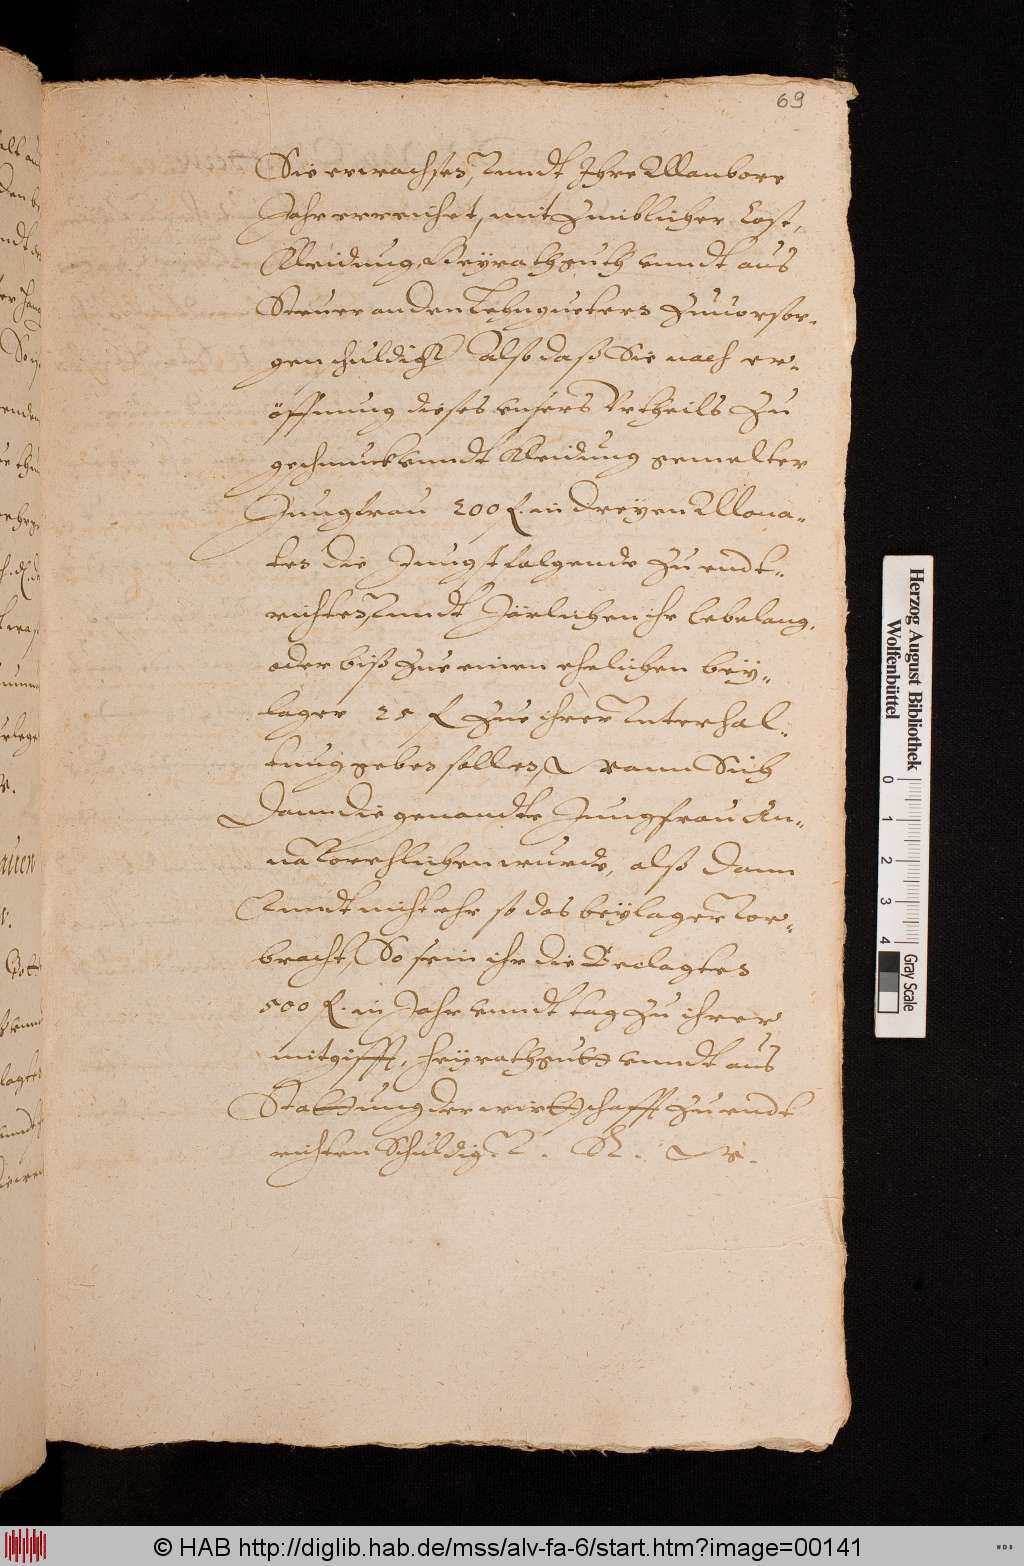 69
Sie erwachsen, unndt Ihre Manbore
Jahr erreichet, mit zimblicher Cost,
Kleidung, Heyrathguth unndt aus
Steuer an den Lehngueters zuuorsor-
gen schuldigk, Also daß Sie nach er-
öffnung dieses unsers Urtheils zu
geschmuck unndt Kleidung gemelter
Jungfrau 200 f. in dreyen Mona-
ten die Jungst folgende zu endt-
richten, unndt Järlichen ihr lebelang
oder biß zue einen ehelichen bey-
lager 25 f zue ihrer Unterhal-
tung geben sollen, wann Sich
Dann die genandte Jungfrau An-
na vorehlichen wurde, alß dann
unndt nicht ehr so das beylager vor-
bracht, So sein ihr die Beclagten
500 f. in Jahr unndt tag zu ihrer
mitgifft, heyrathgutt unndt aus
Stattung der wirttschafft zu endt
richten Schuldig
Herzog August Bibliothek
Wolfenbüttel
0 1 2 3 4
Gray Scale
© HAB http://diglib.hab.de/mss/alv-fa-6/start.htm?image=00141